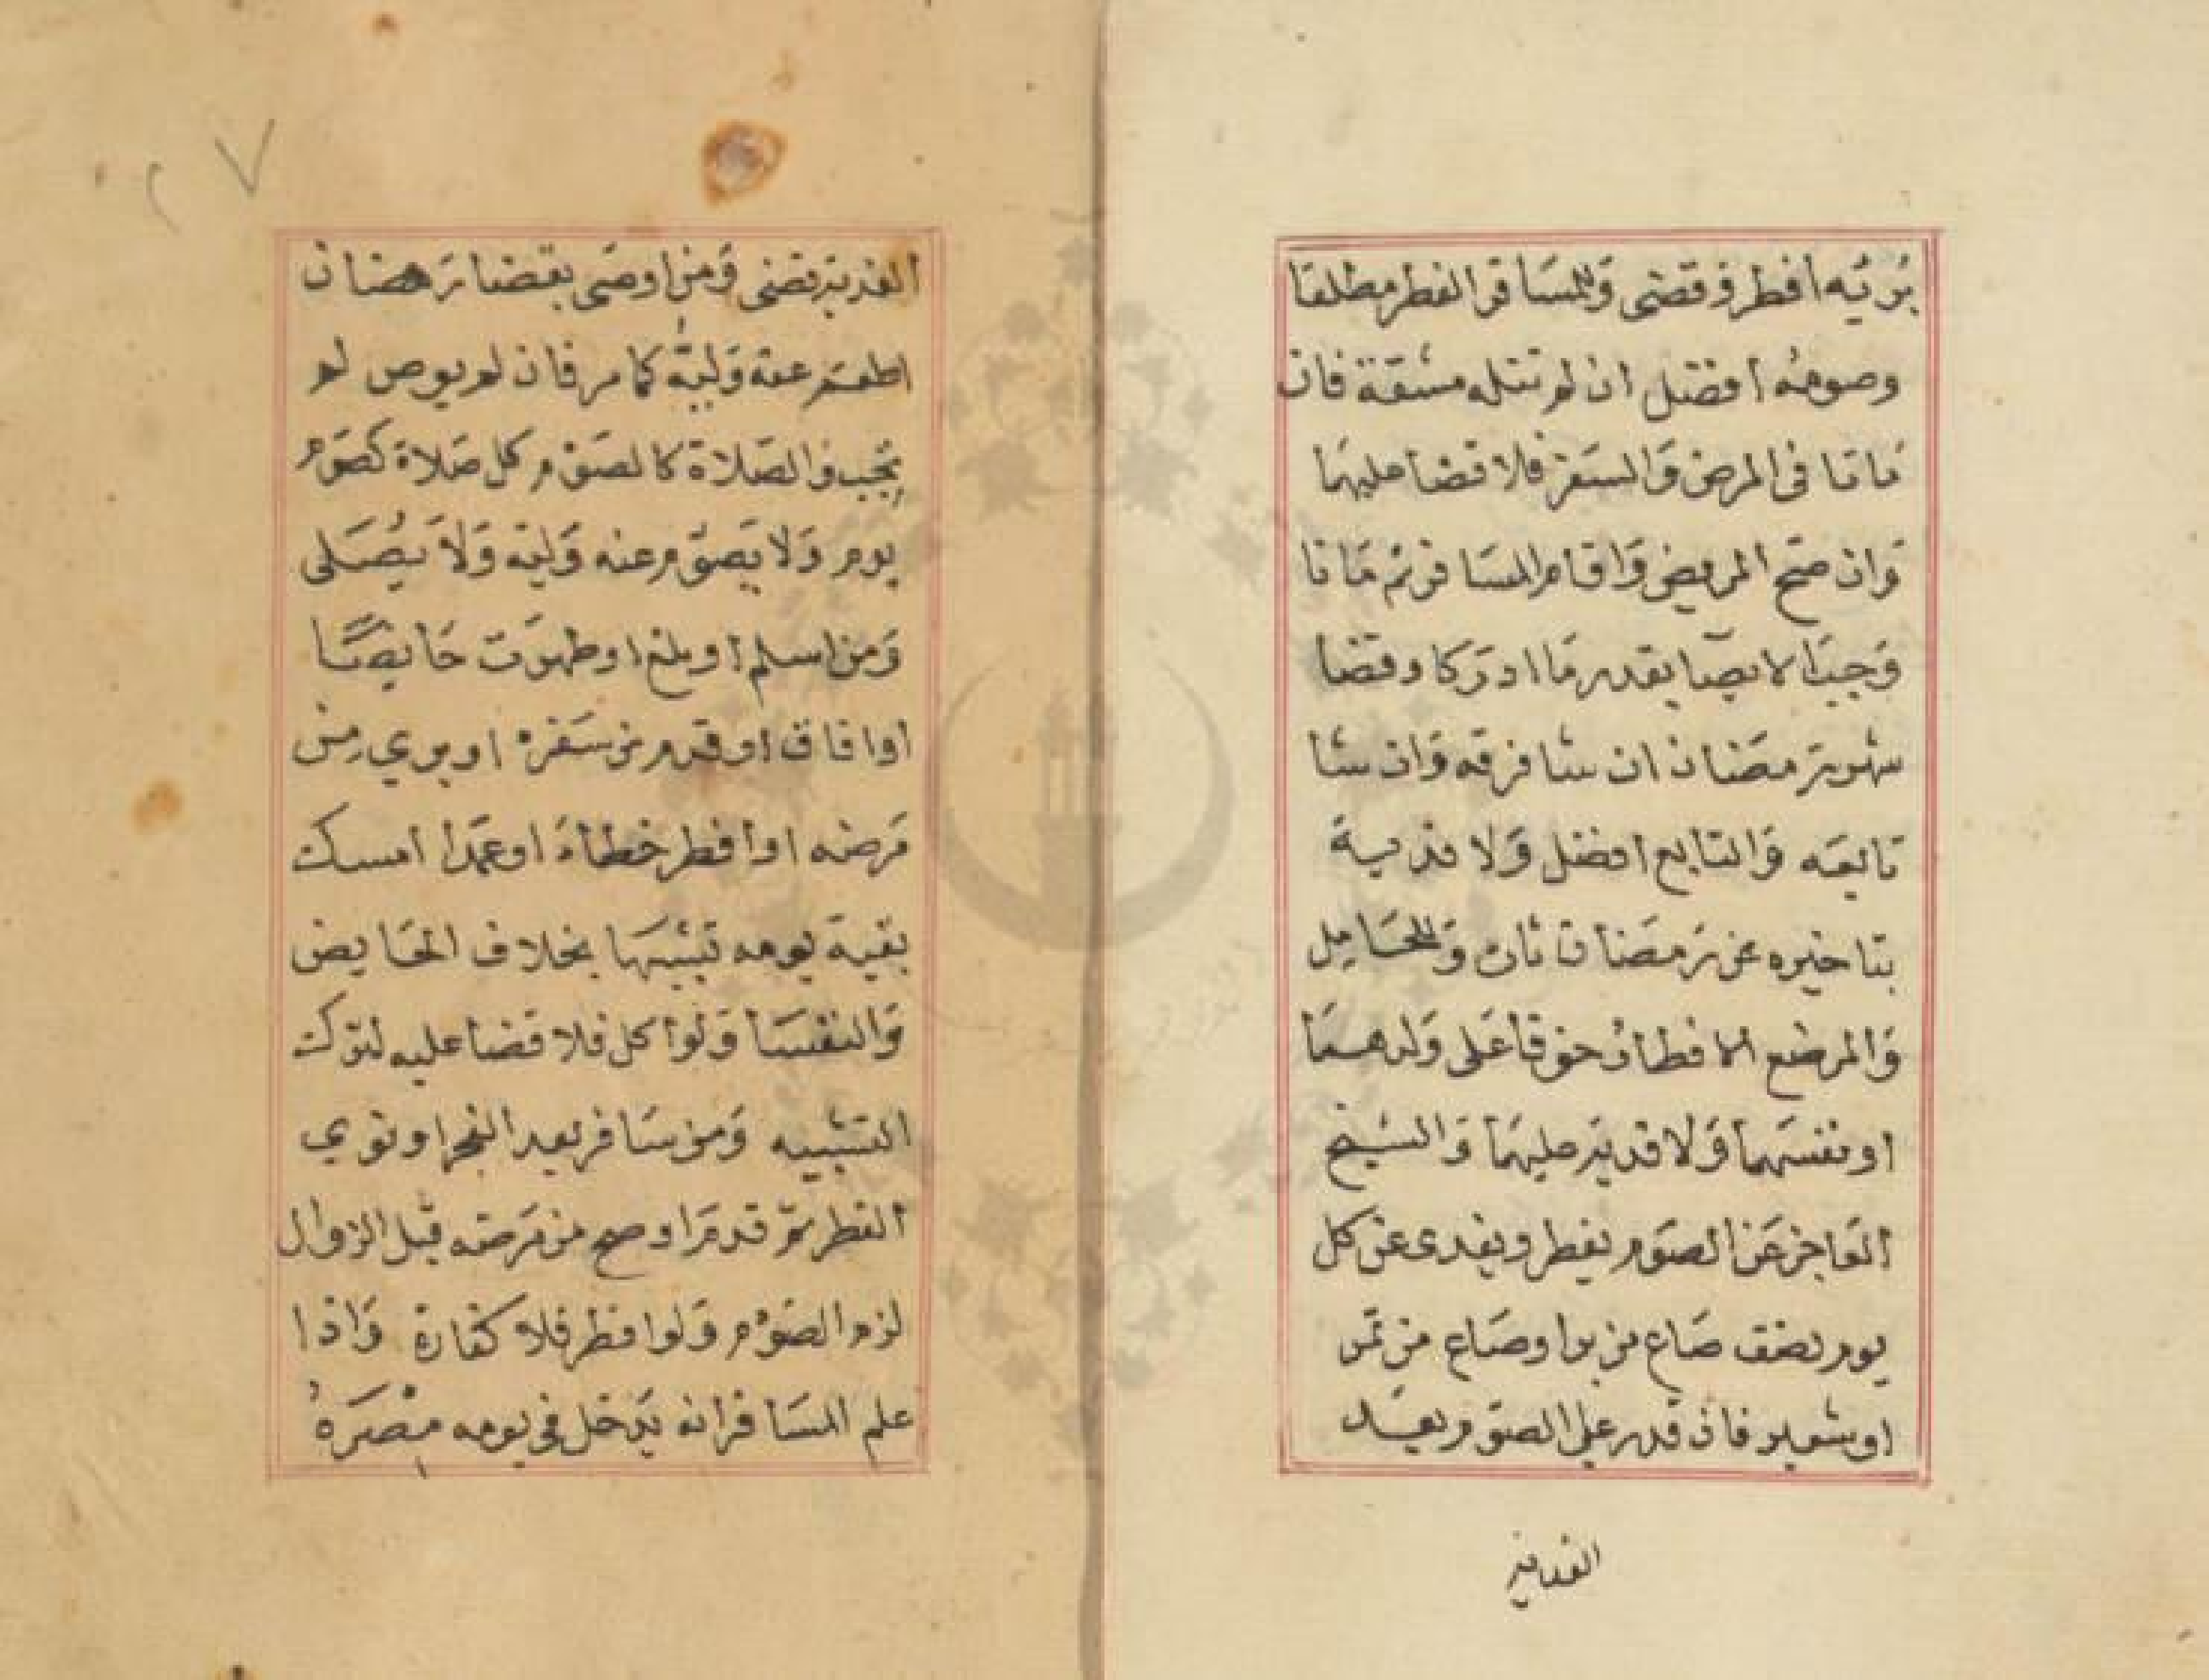 برئه افطر وقضى وللمسافر الفطر مطلقا
وصومه افضل ان لم تنله مشقة فان
ماتا في المرض والسفر فلا قضا عليهما
وان صح المريض واقام المسافر ثم ماتا
وجب الايصا بقدر ما ادركا وقضا
شهر رمضان ان شا فرقه وان شا
تابعه والتتابع افضل ولا فدية
بتاخيره عن رمضان ثان وللحامل
والمرضع الافطار خوفا على ولدهما
او نفسهما ولا فدية عليهما والشيخ
العاجز عن الصوم يفطر ويفدى عن كل
يوم نصف صاع من بر او صاع من تمر
او شعير فان قدر على الصوم بعد
الفدية
٢٧
الفدية قضى ومن اوصى بقضا رمضان
اطعم عنه وليه كما مر فان لم يوص لم
يجب والصلاة كالصوم كل صلاة كصوم
يوم ولا يصوم عنه وليه ولا يصلى
ومن اسلم او بلغ او طهرت حايضا
او افاق او قدم من سفره او بري من
مرضه او افطر خطاء او عمدا امسك
بقية يومه تشبها بخلاف الحايض
والنفسا ولو اكل فلا قضا عليه لترك
التشبيه ومن سافر بعد الفجر او نوي
الفطر ثم قدم او صح من مرضه قبل الزوال
لزم الصوم ولو افطر فلا كفارة واذا
علم المسافر انه يدخل في يومه مصره